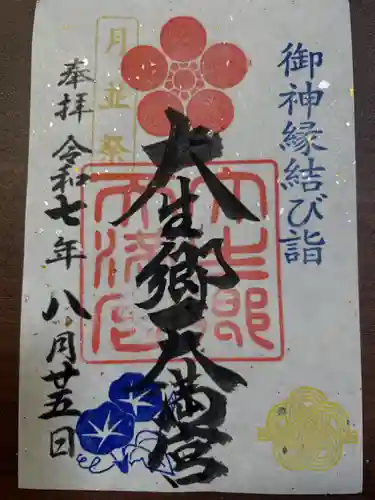 御神縁結び詣
大生郷天満宮
月並祭
奉拝
令和七年八月廿五日